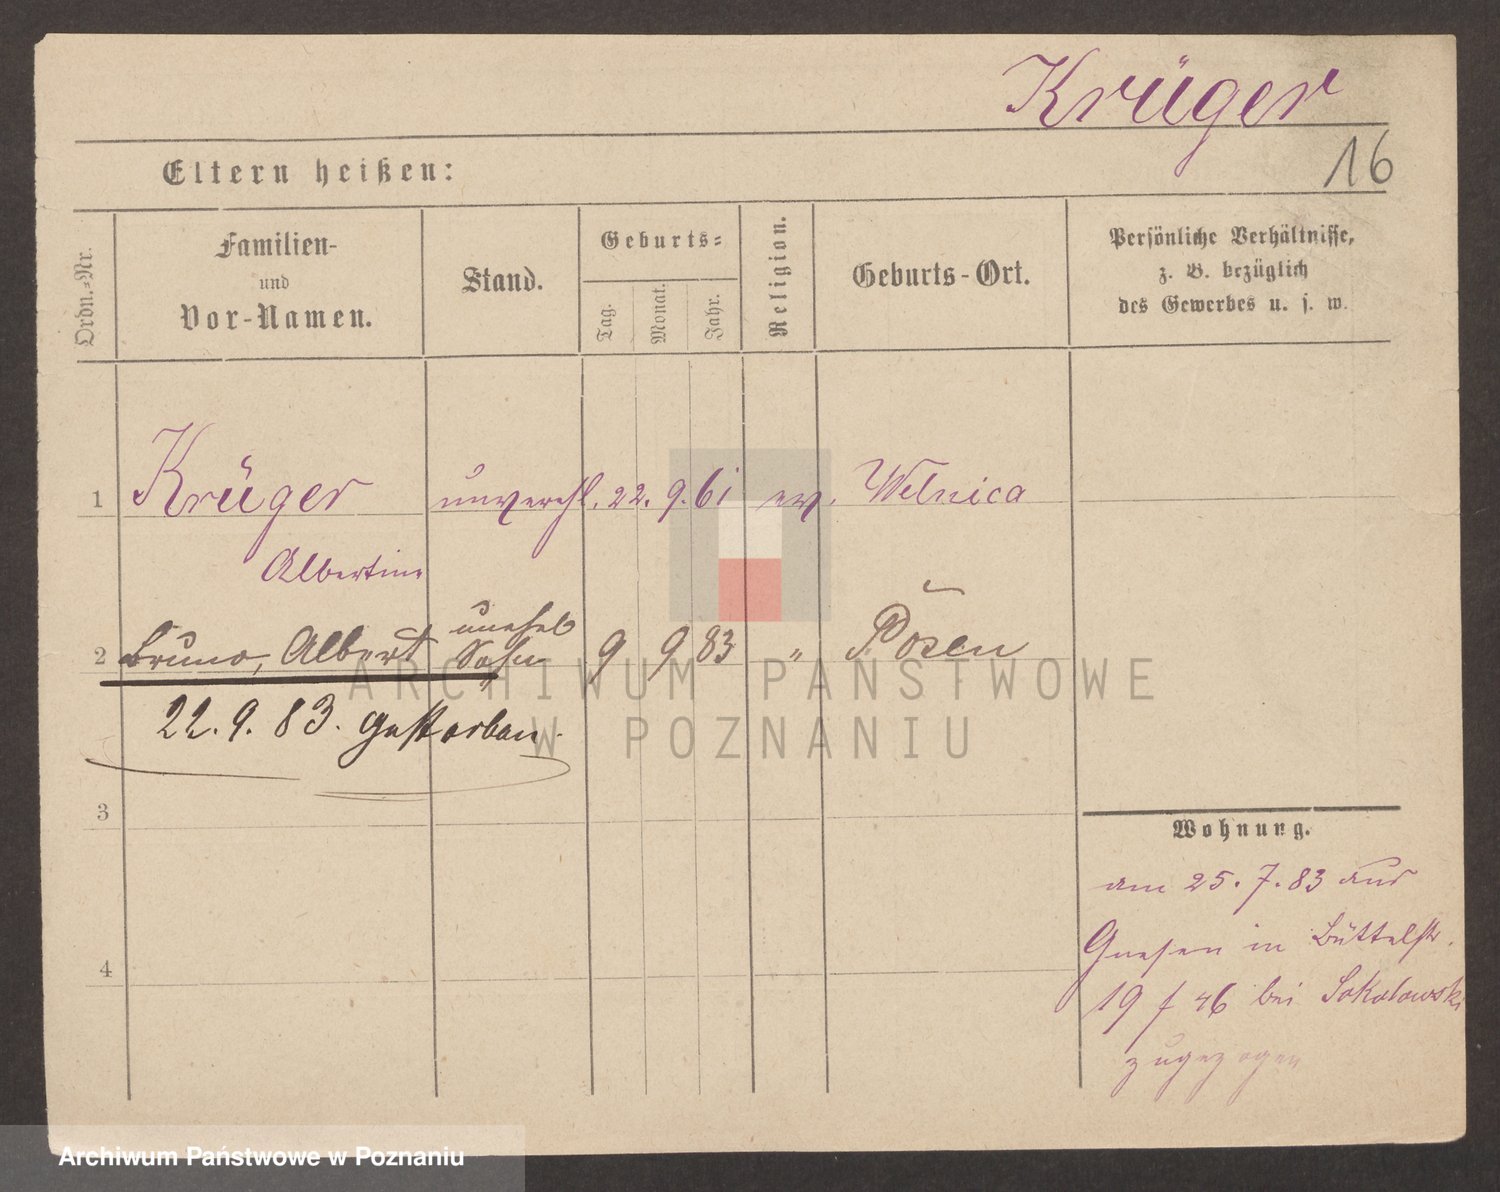 Krüger
16
Eltern heißen:
Ordn.-Nr.
Familien-
und
Vor-Namen.
Stand.
Geburts-
Tag.
Monat.
Jahr.
Religion.
Geburts-Ort.
Persönliche Verhältnisse,
z. B. bezüglich
des Gewerbes u. s. w.
1 Krüger unverehl. 22. 9. 61 ev. Welnica
Albertine
2 Bruno, Albert unehel Sohn 9 9 83 " Posen
22. 9. 83. gestorben.
3
4
Wohnung.
am 25. 7. 83 aus
Gnesen in Büttelstr.
19 / 46 bei Sokolowski
zugezogen
ARCHIWUM PAŃSTWOWE
W POZNANIU
Archiwum Państwowe w Poznaniu